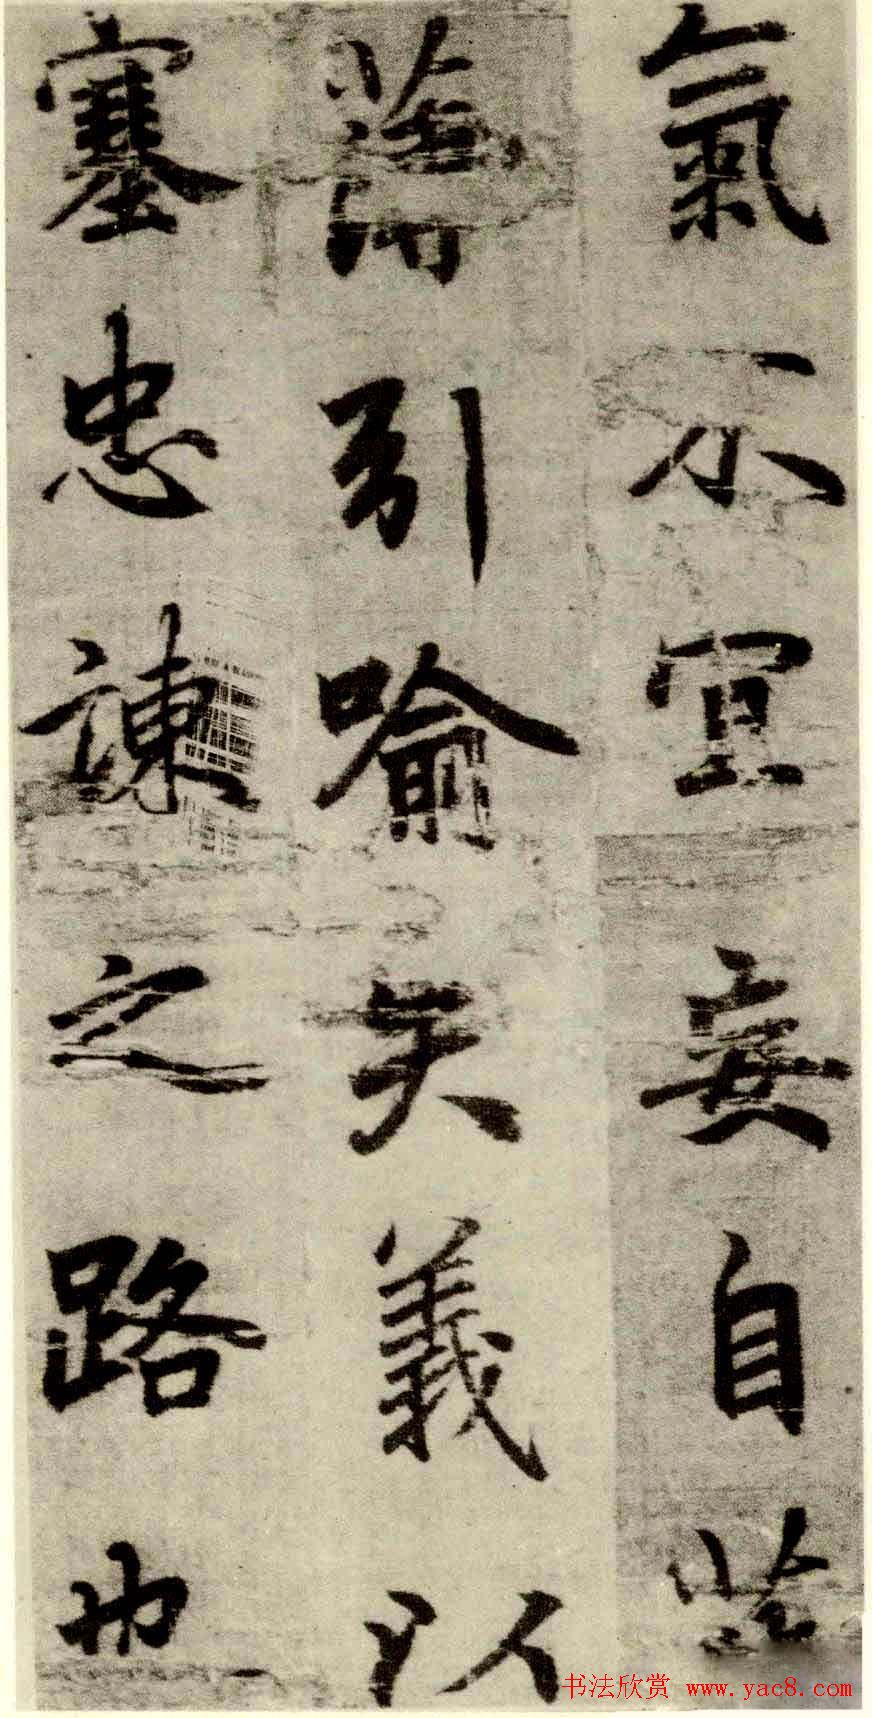 氣不宜妄自菲
薄引喻失義以
塞忠諫之路也
书法欣赏 www.yac8.com